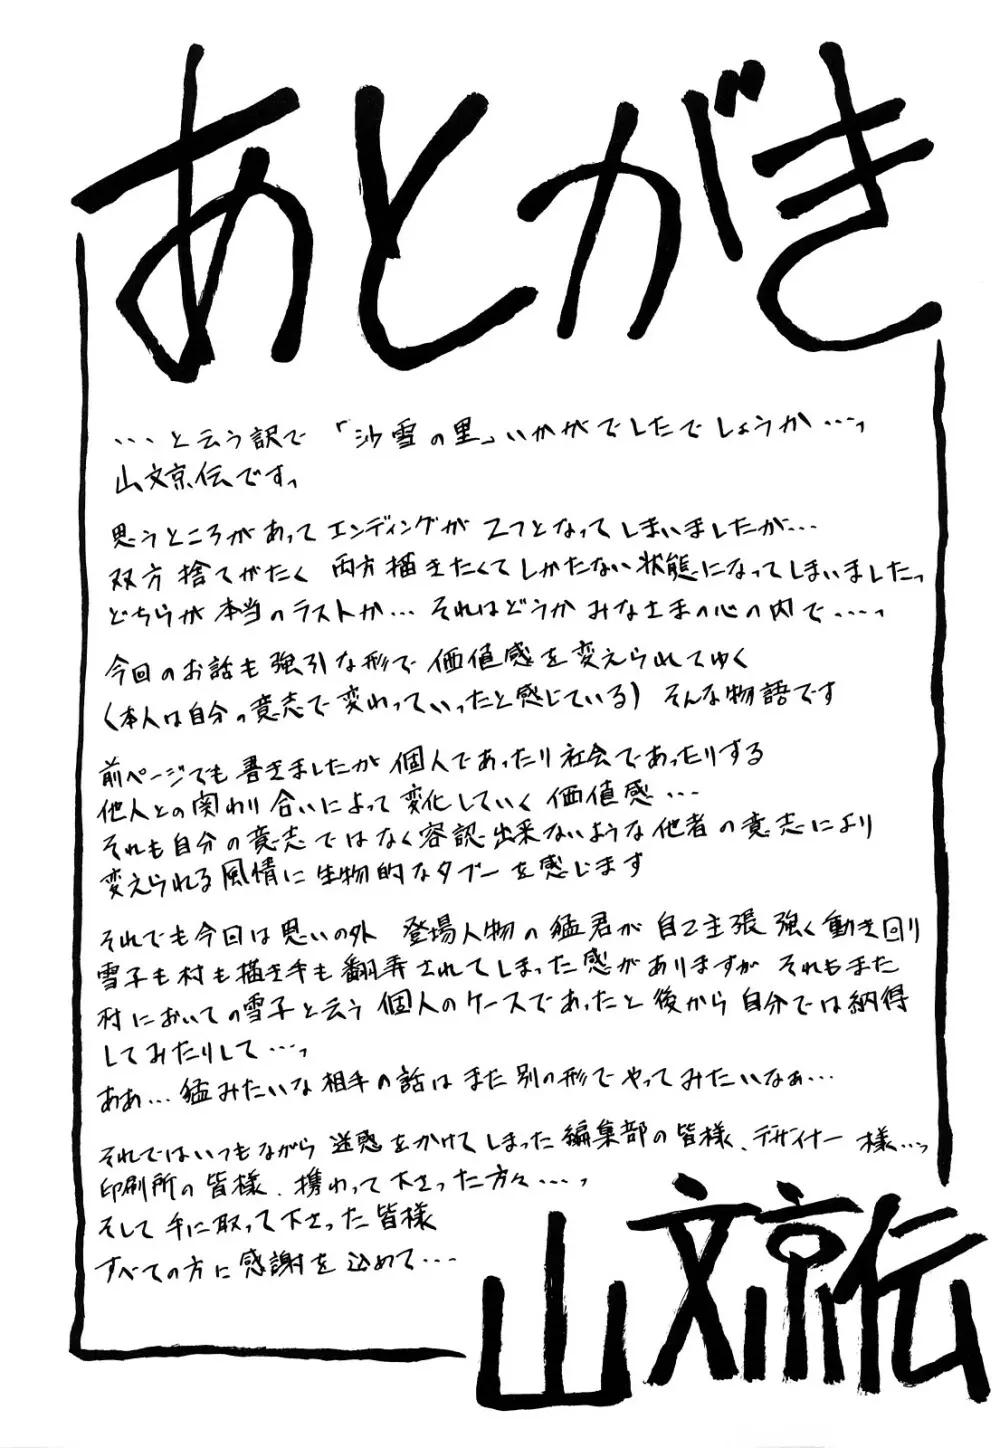 あとがき
…と云う訳で「沙雪の里」いかがでしたでしょうか…っ
山文京伝ですっ
思うところがあってエンディングが2つとなってしまいましたが…
双方捨てがたく 両方描きたくてしかたない状態になってしまいましたっ
どちらが本当のラストか…それはどうかみなさまの心の内で…っ
今回のお話も強引な形で価値感を変えられてゆく
(本人は自分の意志で変わっていったと感じている) そんな物語です
前ページでも書きましたが 個人であったり社会であったりする
他人との関わり合いによって変化していく価値感…
それも自分の意志ではなく容認出来ないような他者の意志により
変えられる風情に生物的なタブーを感じます
それでも今回は思いの外 登場人物の猛君が自己主張強く動き回り
雪子も村も描き手も翻弄されてしまった感がありますが それもまた
村においての雪子と云う個人のケースであったと後から自分では納得
してみたりして…っ
ああ…猛みたいな相手の話はまた別の形でやってみたいなぁ…
それではいつもながら迷惑をかけてしまった編集部の皆様、デザイナー様…っ
印刷所の皆様、携わって下さった方々…っ
そして手に取って下さった皆様
すべての方に感謝を込めて…
山文京伝